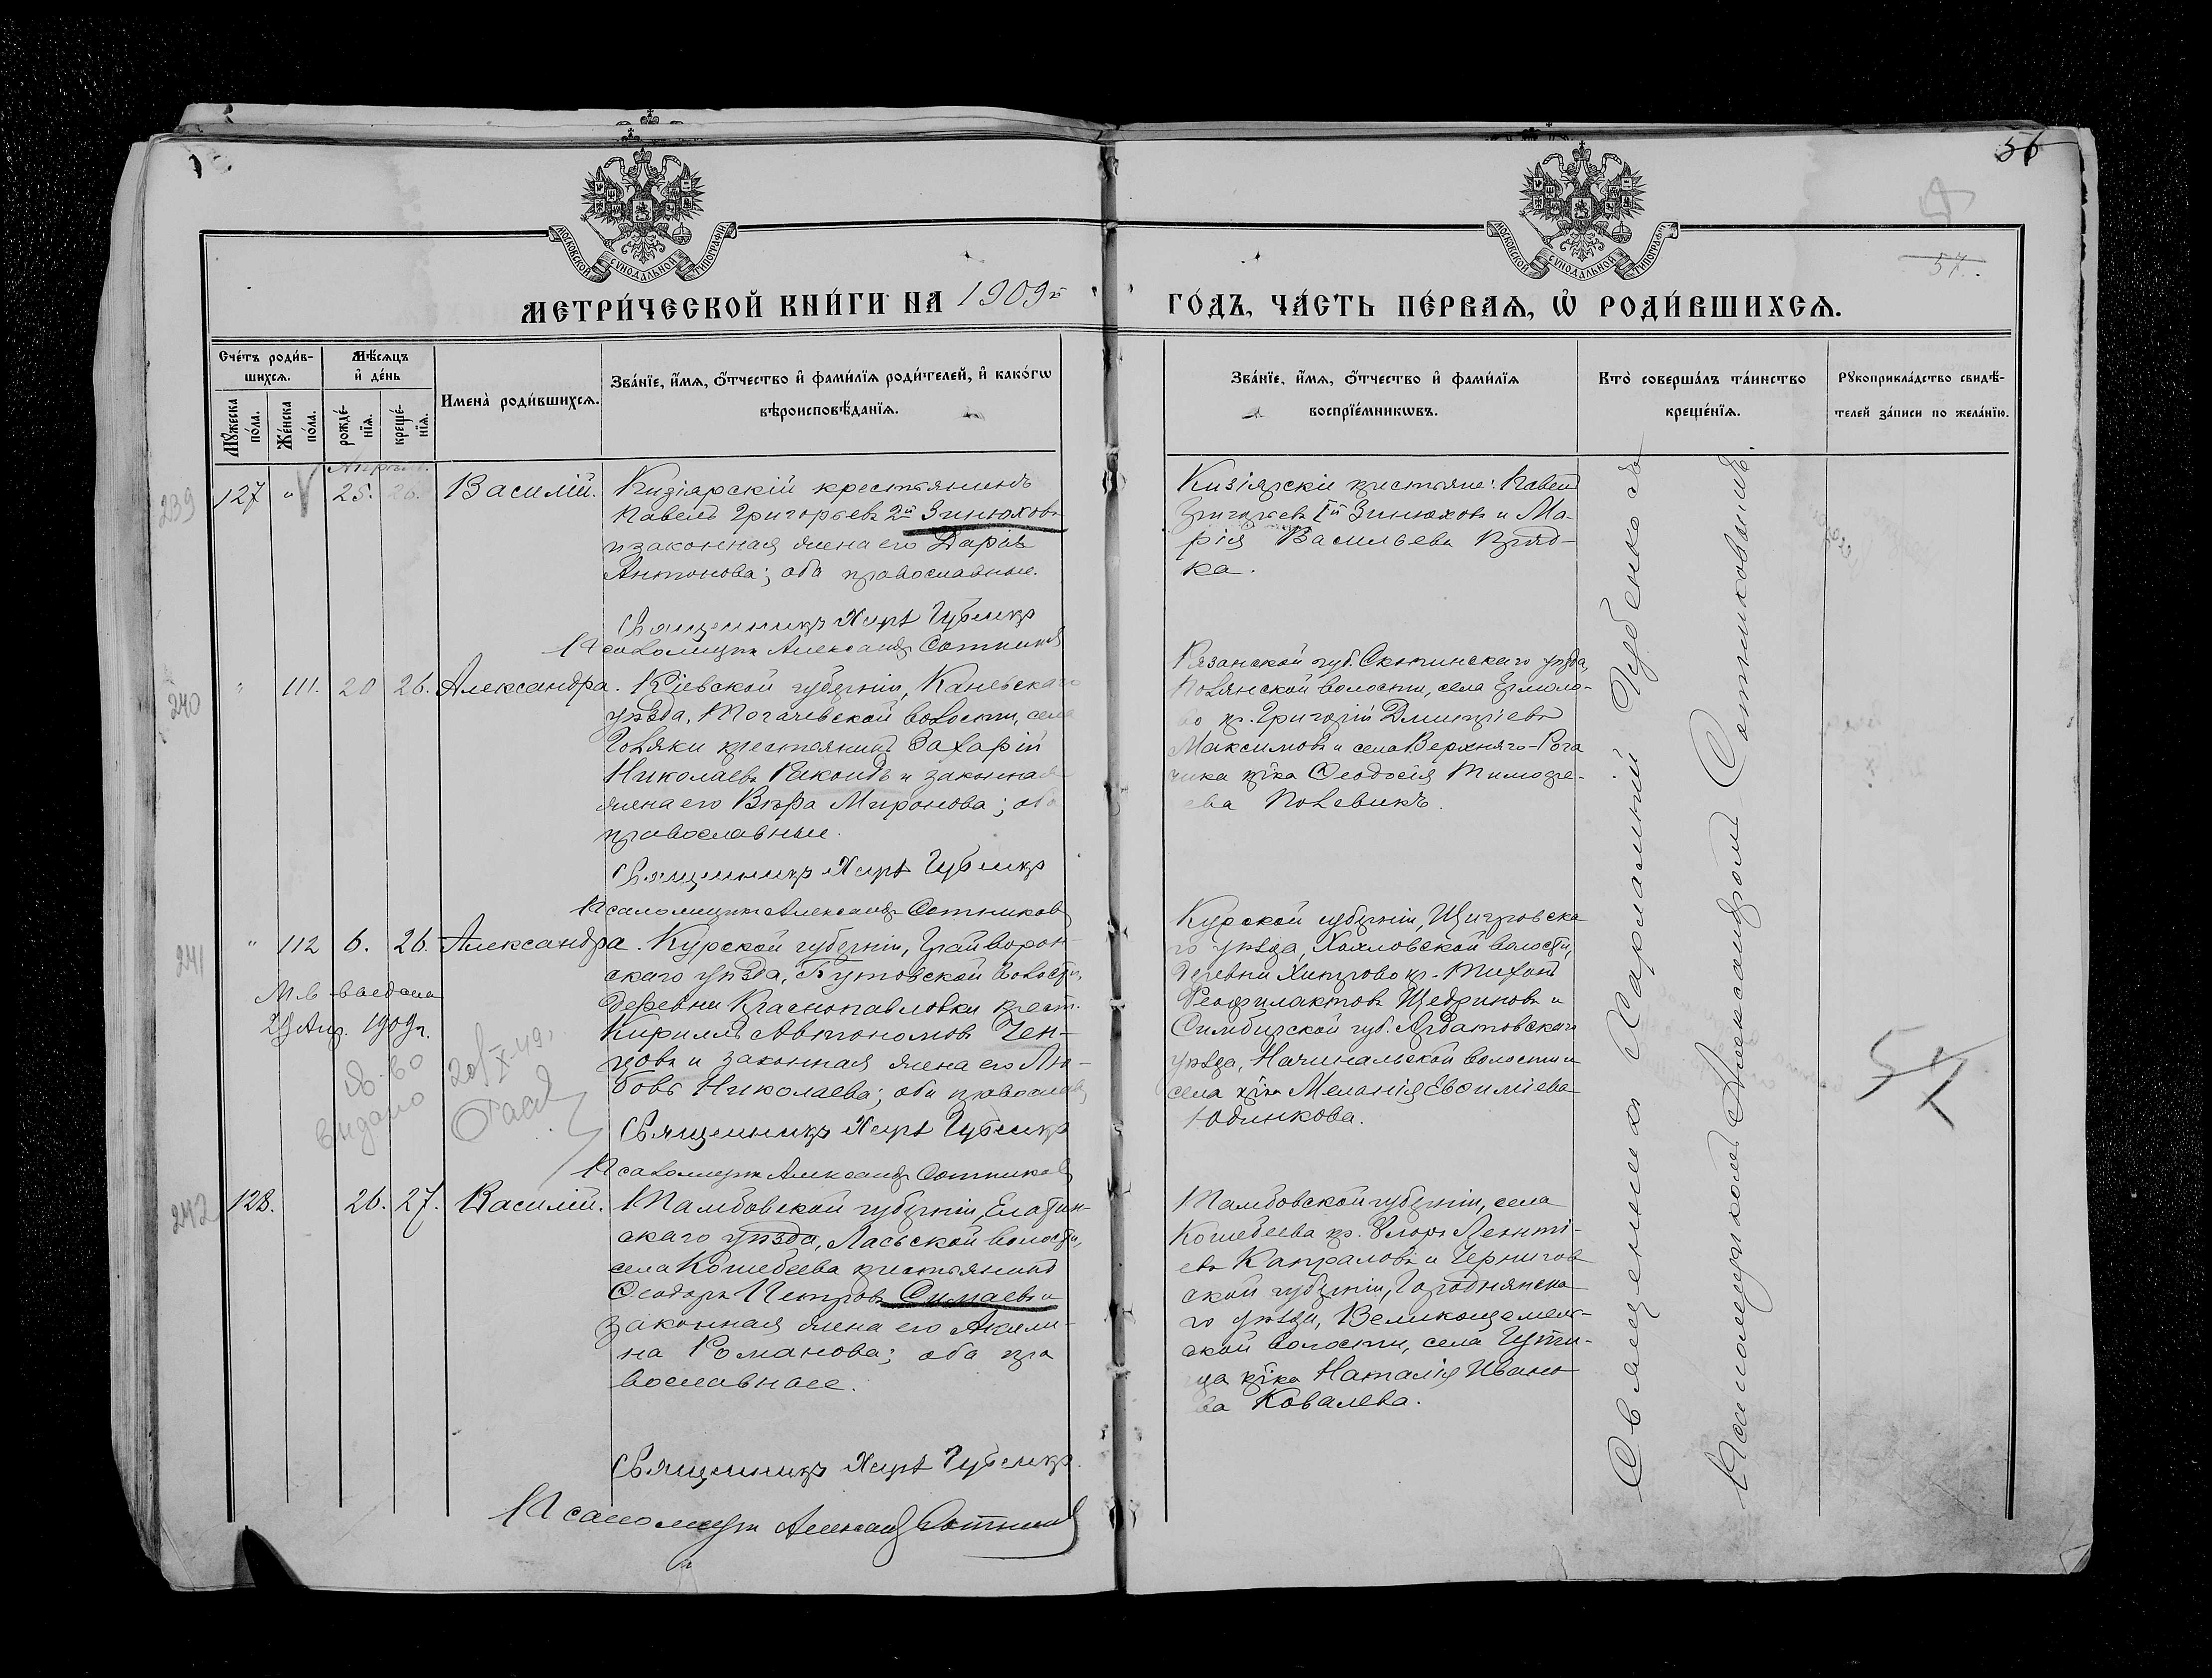 56
57.
МОСКОВСКОЙ СѴНОДАЛЬНОЙ ТИПОГРАФІИ
МОСКОВСКОЙ СѴНОДАЛЬНОЙ ТИПОГРАФІИ
МЕТРИ́ЧЕСКОЙ КНИ́ГИ НА 1909й
ГО́ДЪ, ЧА́СТЬ ПЕ́РВАѦ, Ѡ҆ РОДИ́ВШИХСѦ.
Сче́тъ роди́в-
шихсѧ.
Мѣ́сѧцъ
и҆ де́нь
Мꙋ́жеска
по́ла.
Же́нска
по́ла.
рожде́-
нїѧ.
креще́-
нїѧ.
Имена̀ роди́вшихсѧ.
Зва́нїе, и҆́мѧ, ѻ҆́тчество и҆ фами́лїѧ роди́телей, и҆ како́гѡ
вѣроисповѣ́данїѧ.
Зва́нїе, и҆́мѧ, ѻ҆́тчество и҆ фами́лїѧ
воспрїе́мникѡвъ.
Кто̀ соверша́лъ та́инство
креще́нїѧ.
Рꙋкоприкла́дство свидѣ́-
телей за́писи по жела́нїю.
Апрѣль.
239
127 " 25. 26. Василій.
Кизіярскій крестьянинъ
Павелъ Григорьевъ 2й Зинюховъ
и законная жена его Дарія
Антонова; оба православные.
Священникъ Харл Губенко
Псаломщикъ Александр Сотников
Кизіярскіе крестьяне: Павелъ
Григорьевъ Iй Зинюховъ и Ма-
рія Васильева Кряд-
ка.
240
" 111. 20 26. Александра.
Кіевской губерніи, Каневскаго
уѣзда, Могачевской волости, села
Голяки крестьянинъ Захарій
Николаевъ Ракоидъ и законная
жена его Вѣра Миронова; оба
православные.
Священникъ Харл Губенко
Псаломщикъ Александр Сотников
Рязанской губ. Скопинскаго уѣзда,
Полянской волости, села Ермоло-
во кр. Григорій Дмитріевъ
Максимовъ и села Верхняго-Рога
чика кр-ка Ѳеодосія Тимоѳе-
ева Полевикъ.
241
" 112 6. 26. Александра.
М. в. выдана
29 Апр. 1909 г.
св-во
выдано 20/X-49
Курской губерніи, Грайворон-
скаго уѣзда, Бутовской волости,
деревни Краснопавловки крест.
Кириллъ Автономовъ Чен-
цовъ и законная жена его Лю-
бовь Николаева; оба православ.
Священникъ Харл Губенко
Псаломщикъ Александр Сотников
Курской губерніи, Щигровска
го уѣзда, Хохловской волости,
деревни Хитрово кр. Тихонъ
Феофилактовъ Щедриновъ и
Симбирской губ. Ардатовскаго
уѣзда, Начинальской волости и
села кр-ка Меланія Евѳиміева
Юдинкова.
242
128. 26. 27. Василій.
Тамбовской губерніи, Елатом-
скаго уѣзда, Ласьской волости,
села Кошибеева крестьянинъ
Ѳеодоръ Петровъ Симаевъ и
законная жена его Акили-
на Романова; оба пра
вославные.
Священникъ Харл Губенко.
Псаломщикъ Александр Сотников
Тамбовской губерніи, села
Кошибеева кр. Флоръ Леонті-
евъ Капраловъ и Чернигов
ской губерніи, Городнянска
го уѣзда, Великощемел-
ской волости, села
кр-ка Наталія Ивано
ва Ковалева.
Священникъ Харлампій Губенко съ
Псаломщикомъ Александромъ Сотниковымъ.
57